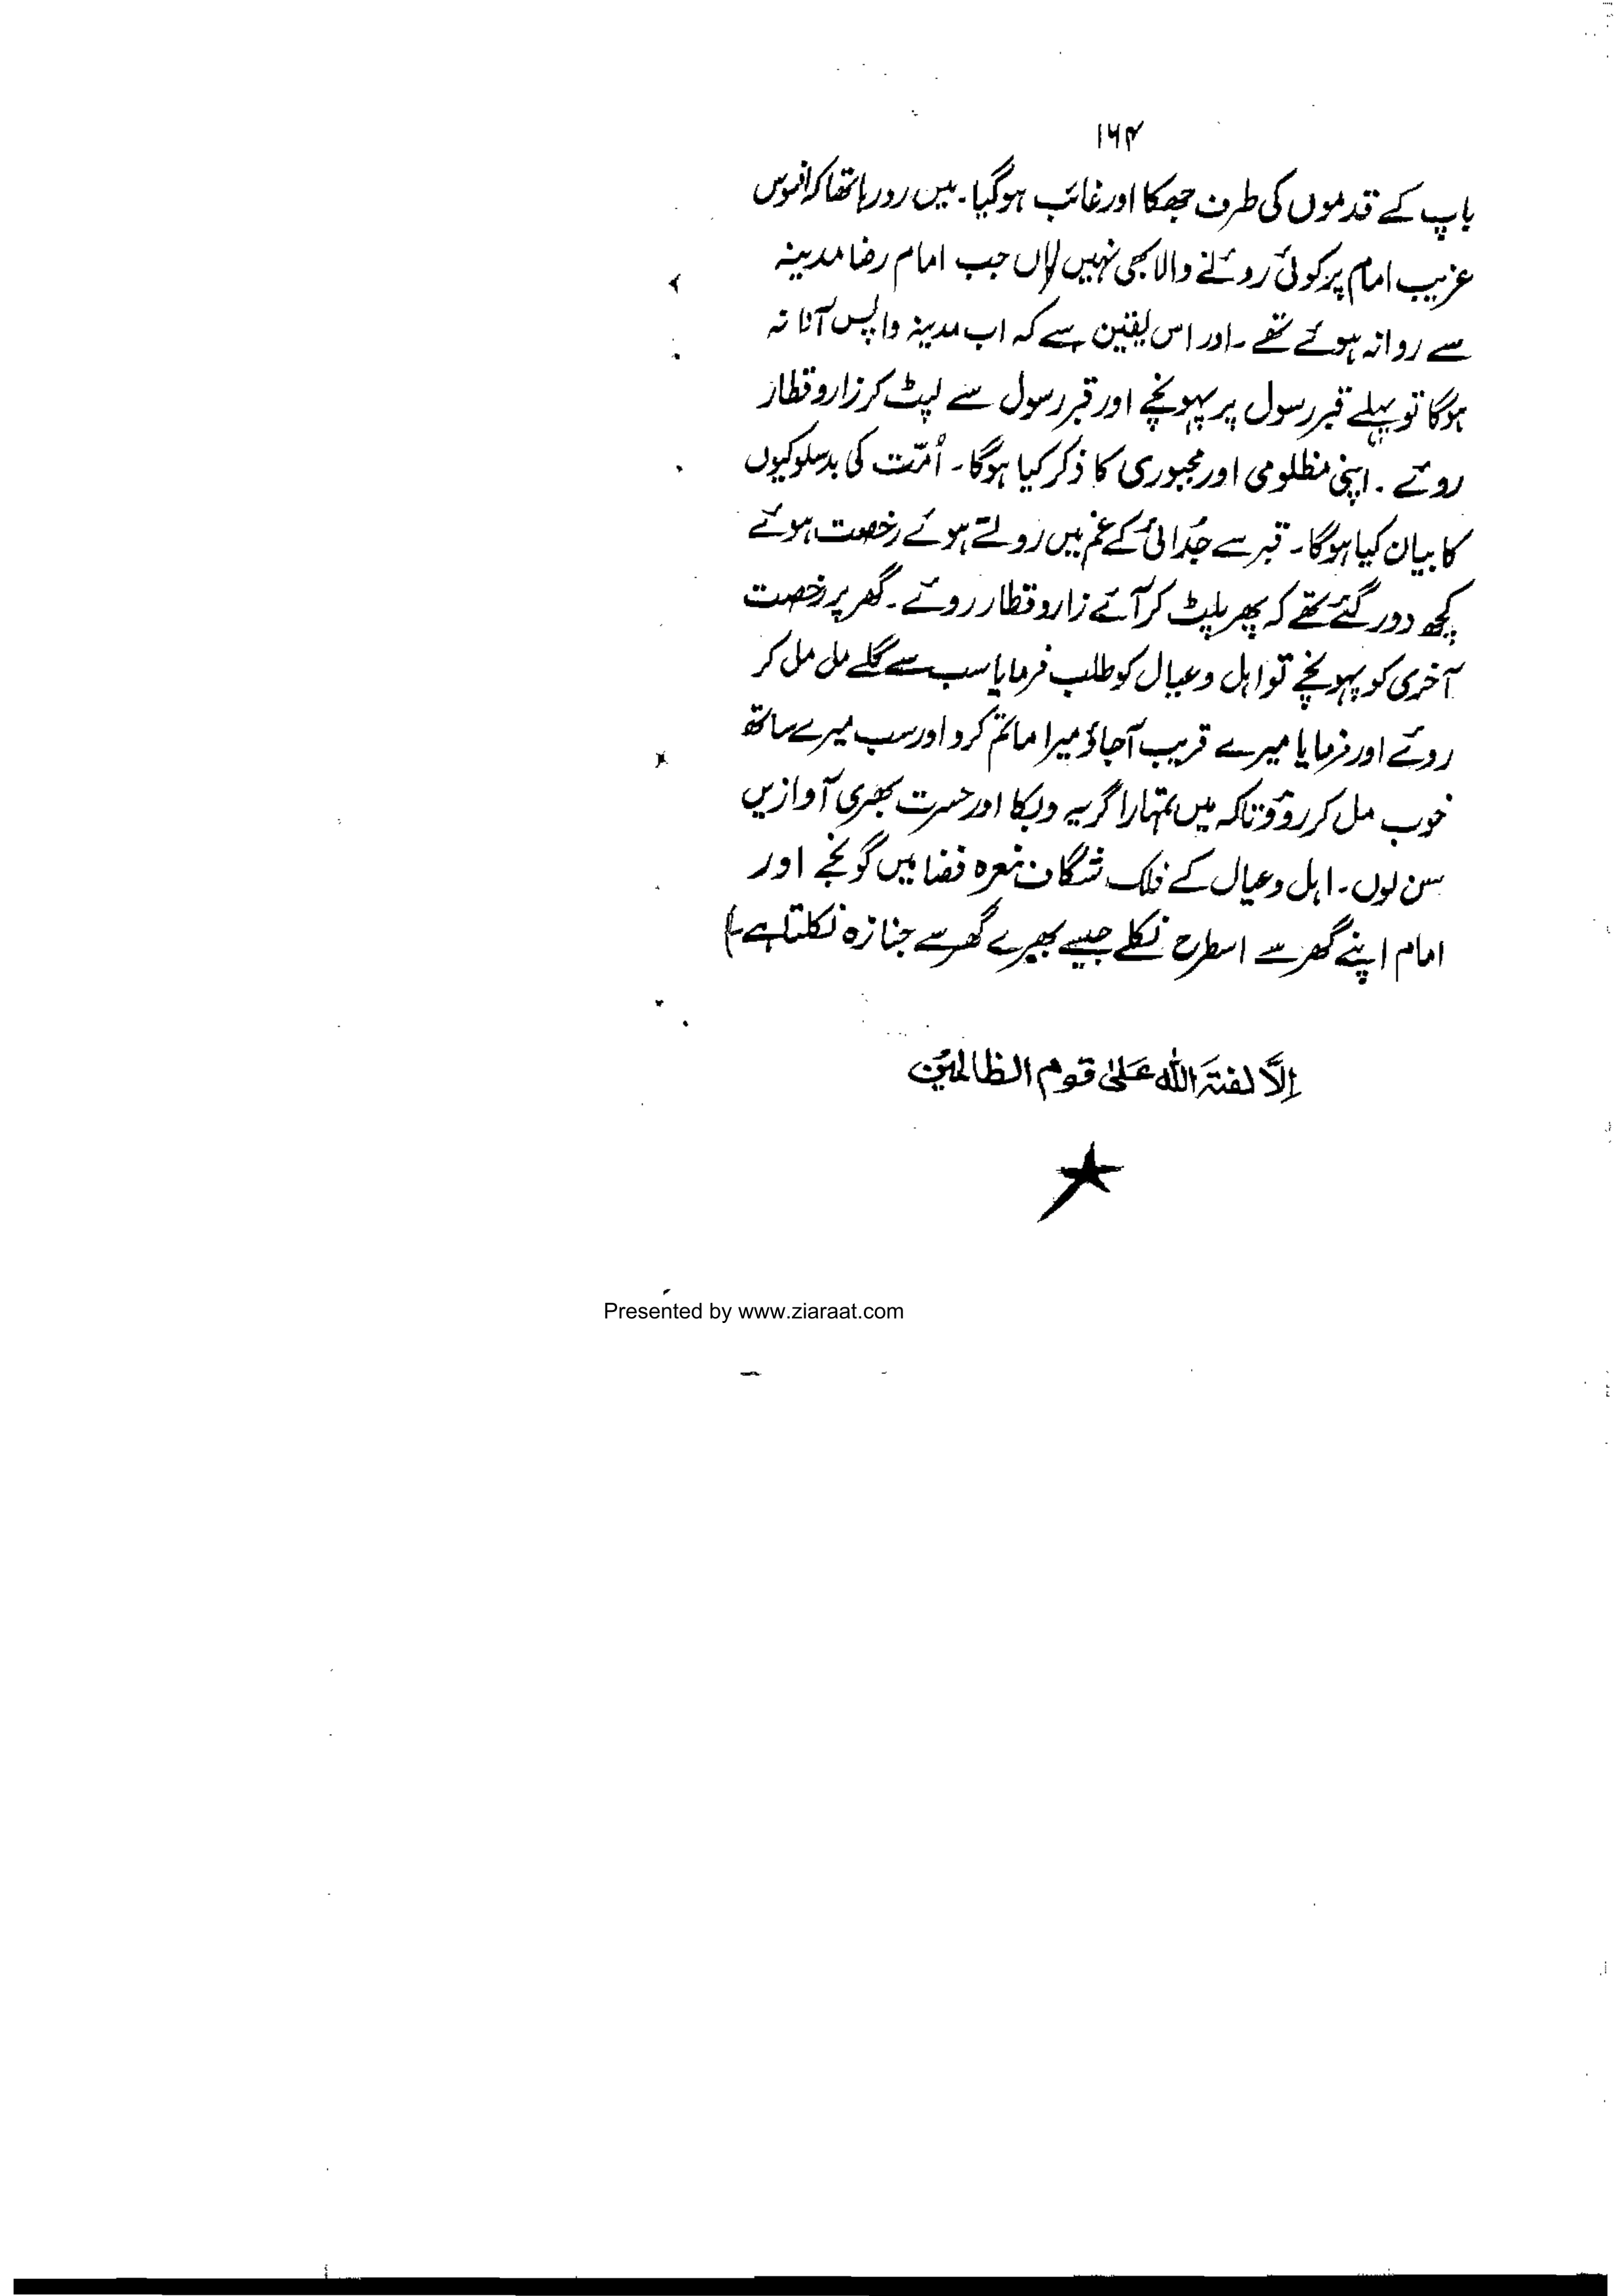 ۱۶۴
باپ کے قدموں کی طرف جھکا اور غائب ہوگیا۔ میں رو رہا تھا کہ افسوس
غریب امام پر کوئی رونے والا بھی نہیں ہاں جب امام رضا مدینہ
سے روانہ ہوئے تھے ۔ اور اس یقین سے کہ اب مدینہ واپس آنا نہ
ہوگا تو پہلے قبر رسول پر پہونچے اور قبر رسول سے لپٹ کر زار و قطار
روئے ۔ اپنی مظلومی اور مجبوری کا ذکر کیا ہوگا۔ اُمّت کی بدسلوکیوں
کا بیان کیا ہوگا۔ قبر سے جُدائی کے غم میں روتے ہوئے رخصت ہوئے
کچھ دور گئے تھے کہ پھر پلیٹ کر آئے زار و قطار روئے۔ گھر پر رخصت
آخری کو پہونچے تو اہل و عیال کو طلب فرمایا سب سے گلے مل مل کر
روئے اور فرمایا میرے قریب آجاؤ میرا ماتم کرو اور سب میرے ساتھ
خوب مل کر روؤ تاکہ میں تمہارا گریہ و بکا اور حسرت بھری آوازیں
سن لوں۔ اہل و عیال کے فلک شگاف نعرہ فضا میں گونجے اور
امام اپنے گھر سے اسطرح نکلے جیسے بھیرے گھر سے جنازہ نکلتا ہے)
اِلَّا لعنتَ اللّٰہ عَلیٰ قوم الظالمِیُن
Presented by www.ziaraat.com